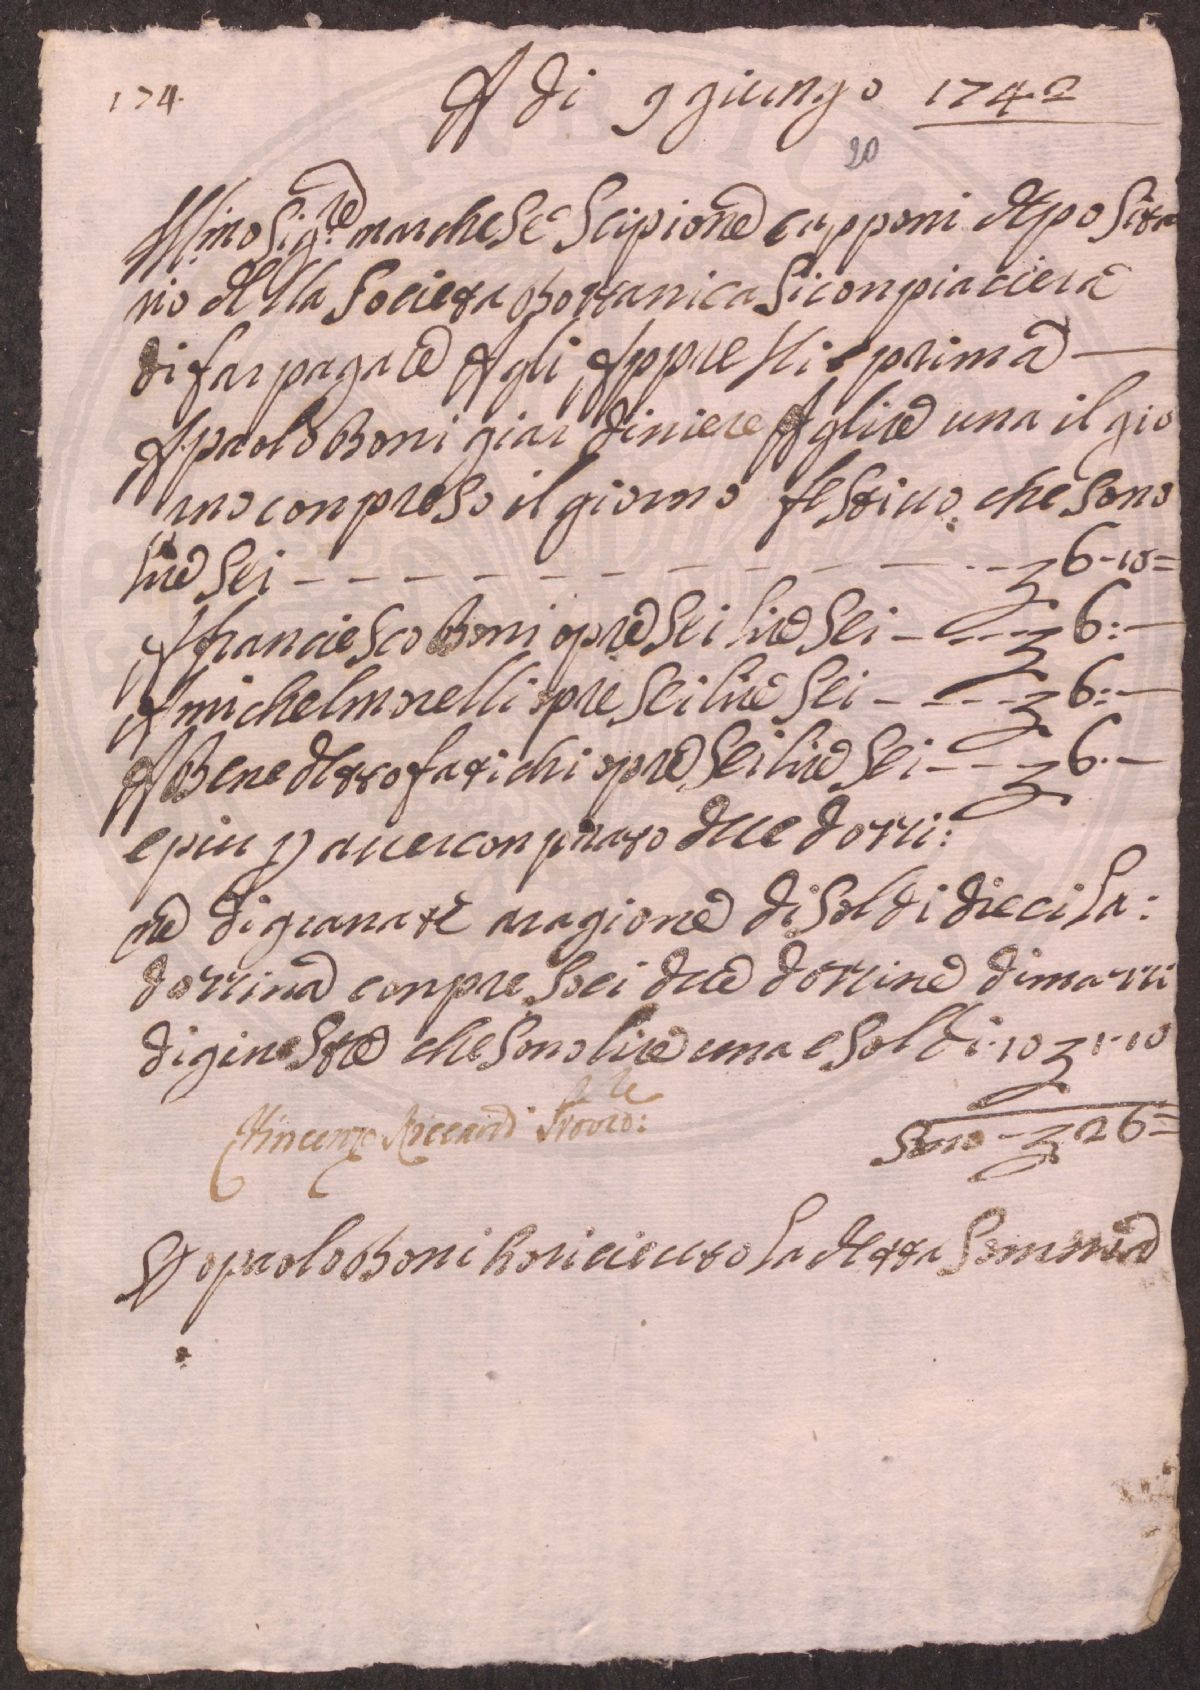 174.
A di 9 giungo 1742
20
Ill:mo Sig:re marchese Scipione capponi deposita
rio della Societa Bottanica Si conpiaciera
di far pagare A gli Appresti e prima —
A paolo Boni giardiniere A lire una il gio
rno conpreso il giorno festiuo che sono
lire Sei - - - - - - - - - - - 6-10=
A franciesco Boni opre Sei lire Sei - - - - 6:—
A michel morelli opre Sei lire Sei - - - - 6:—
A Benedetto fatichi opre Sei lire Sei - - - 6.—
e piu p auer conprato due dozzi:
ne di granate aragione di Soldi dieci la:
dozzina conpresoci due dozzine di mazzi
di ginestre che sono lire una e Soldi.10 1-10
Vincenzo Riccardi Provved:re
Sono - 26=
Io paolo Boni ho riceuto la detta Somma